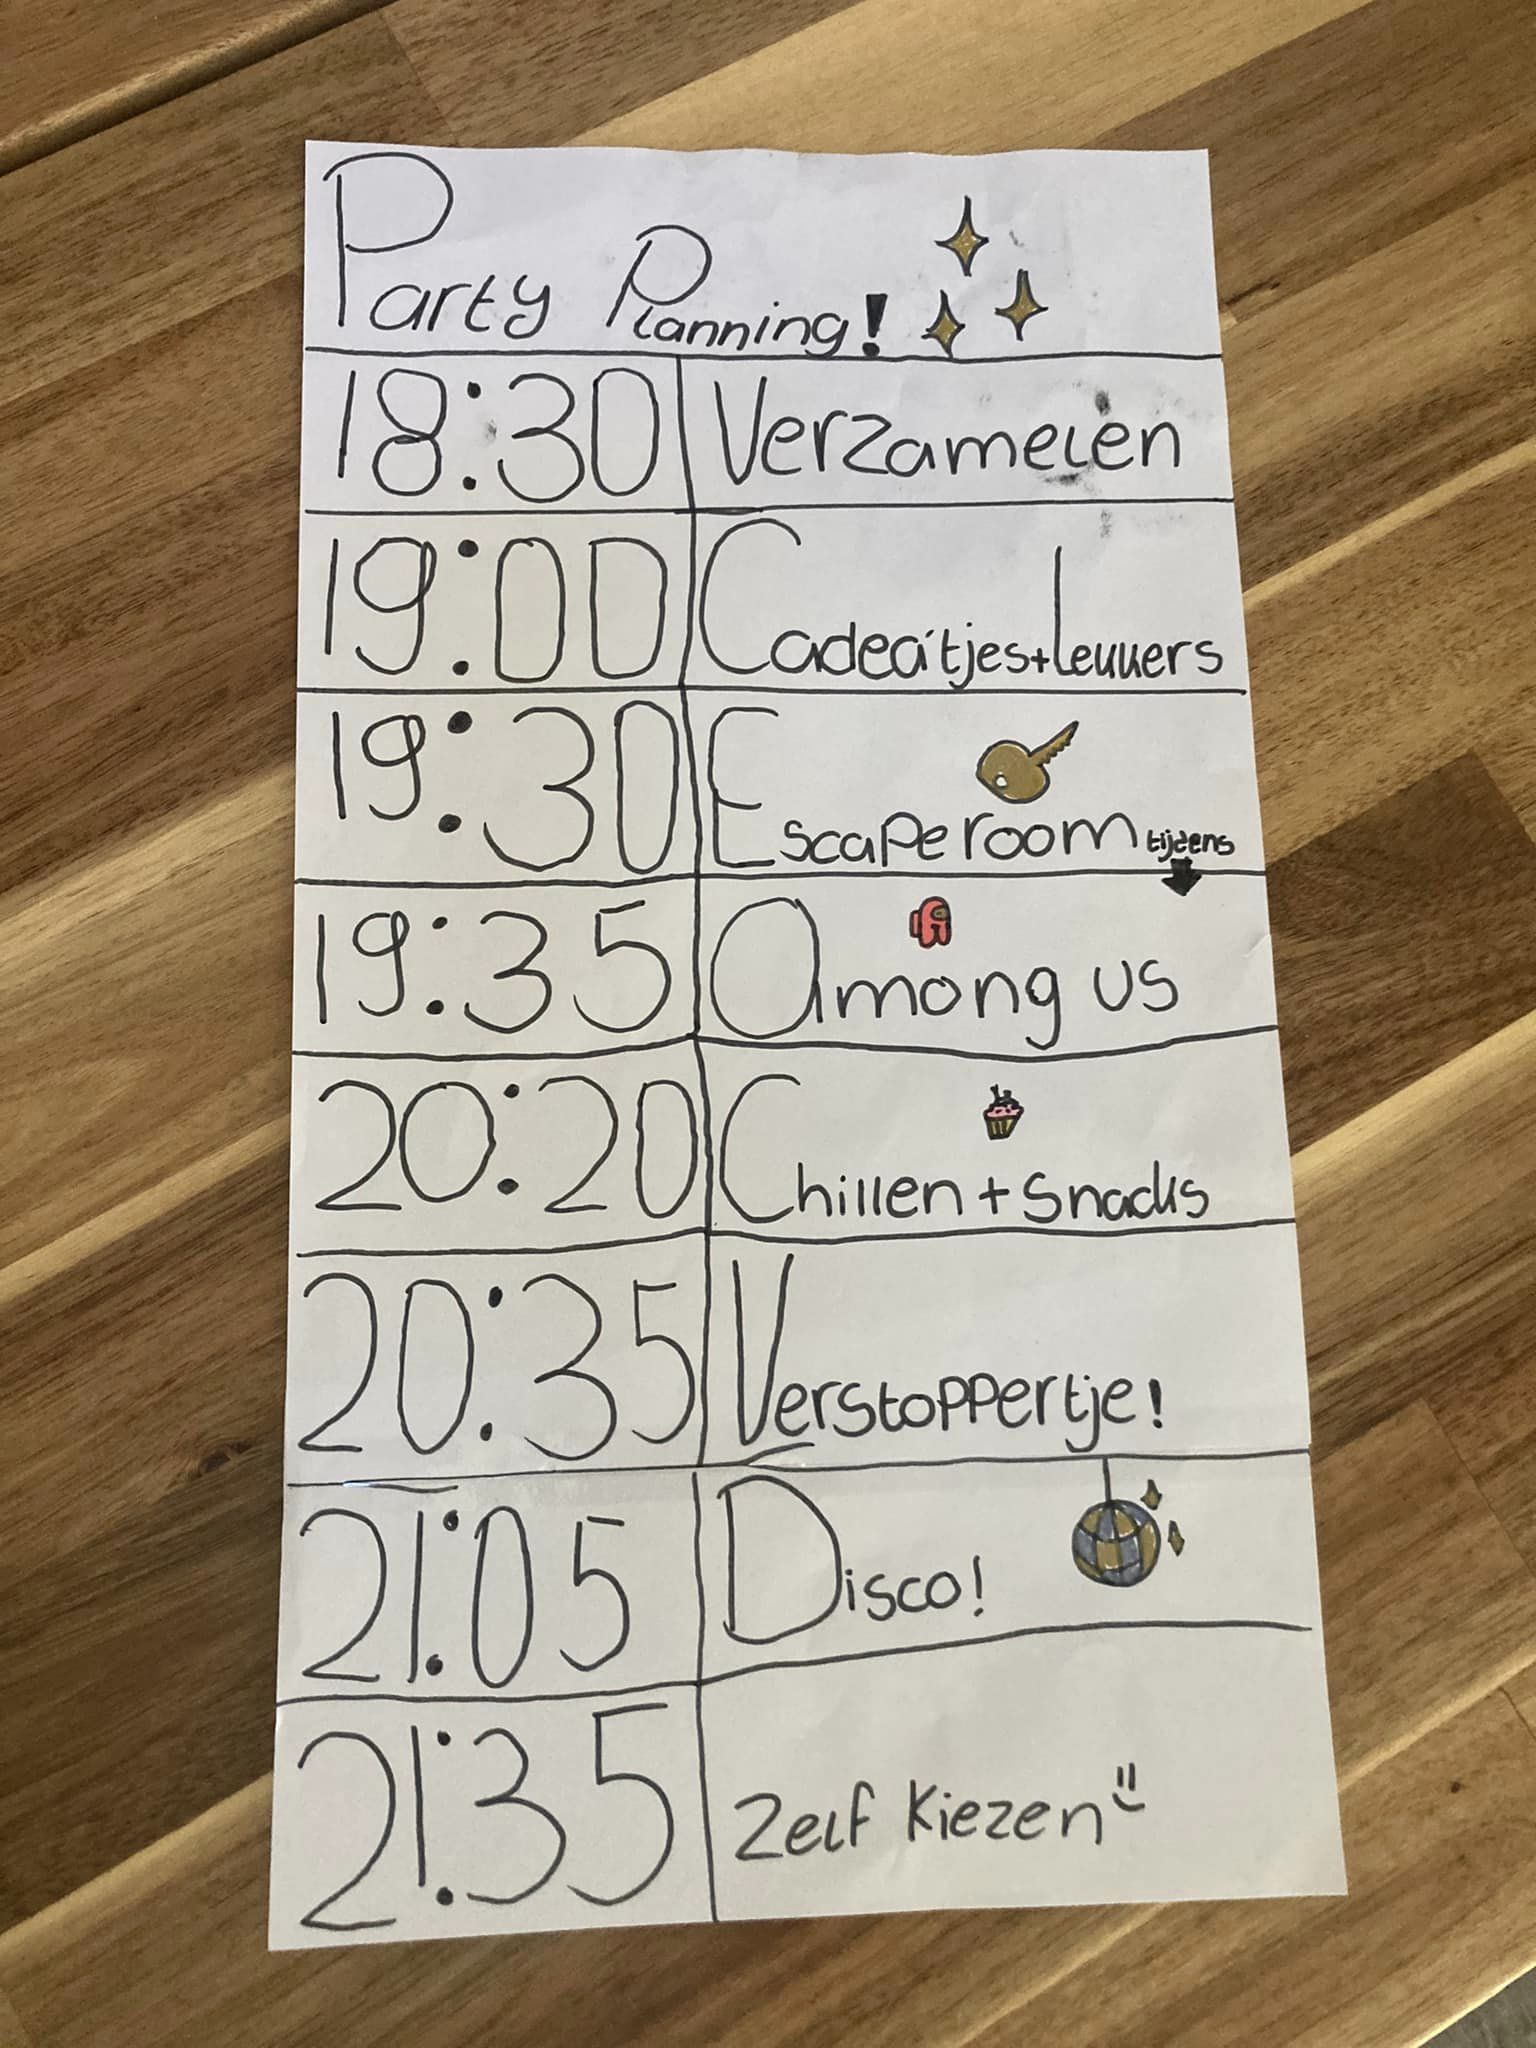 Party Planning!
18:30 Verzamelen
19:00 Cadeaítjes+Lekkers
19:30 Escape room tijdens
19:35 Among us
20:20 Chillen + Snacks
20:35 Verstoppertje!
21:05 Disco!
21:35 Zelf kiezen